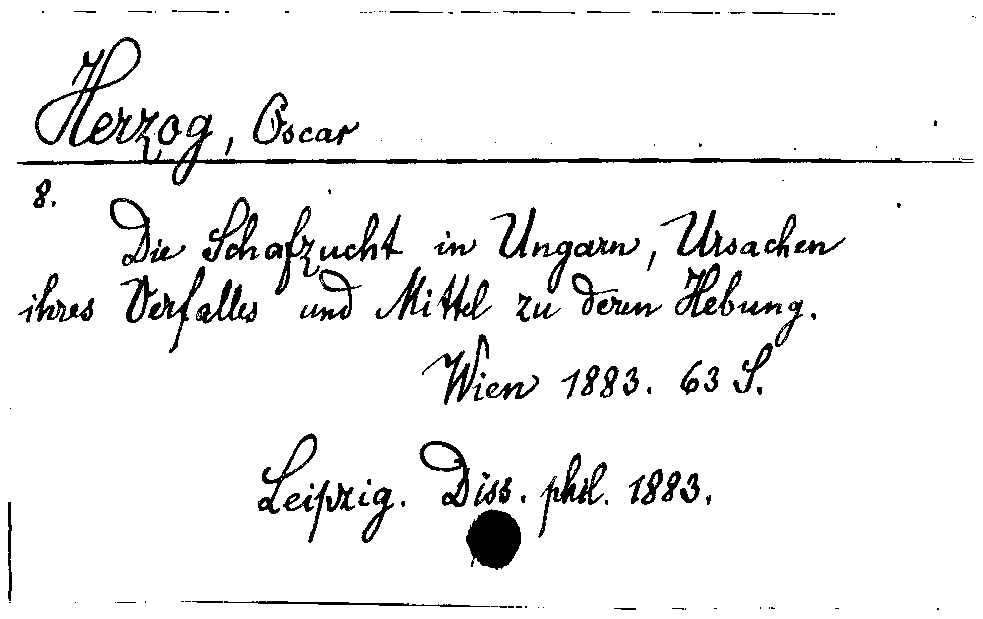 Herzog, Oscar
8.
Die Schafzucht in Ungarn, Ursachen
ihres Verfalles und Mittel zu deren Hebung.
Wien 1883. 63 S.
Leipzig. Diss. phil. 1883.